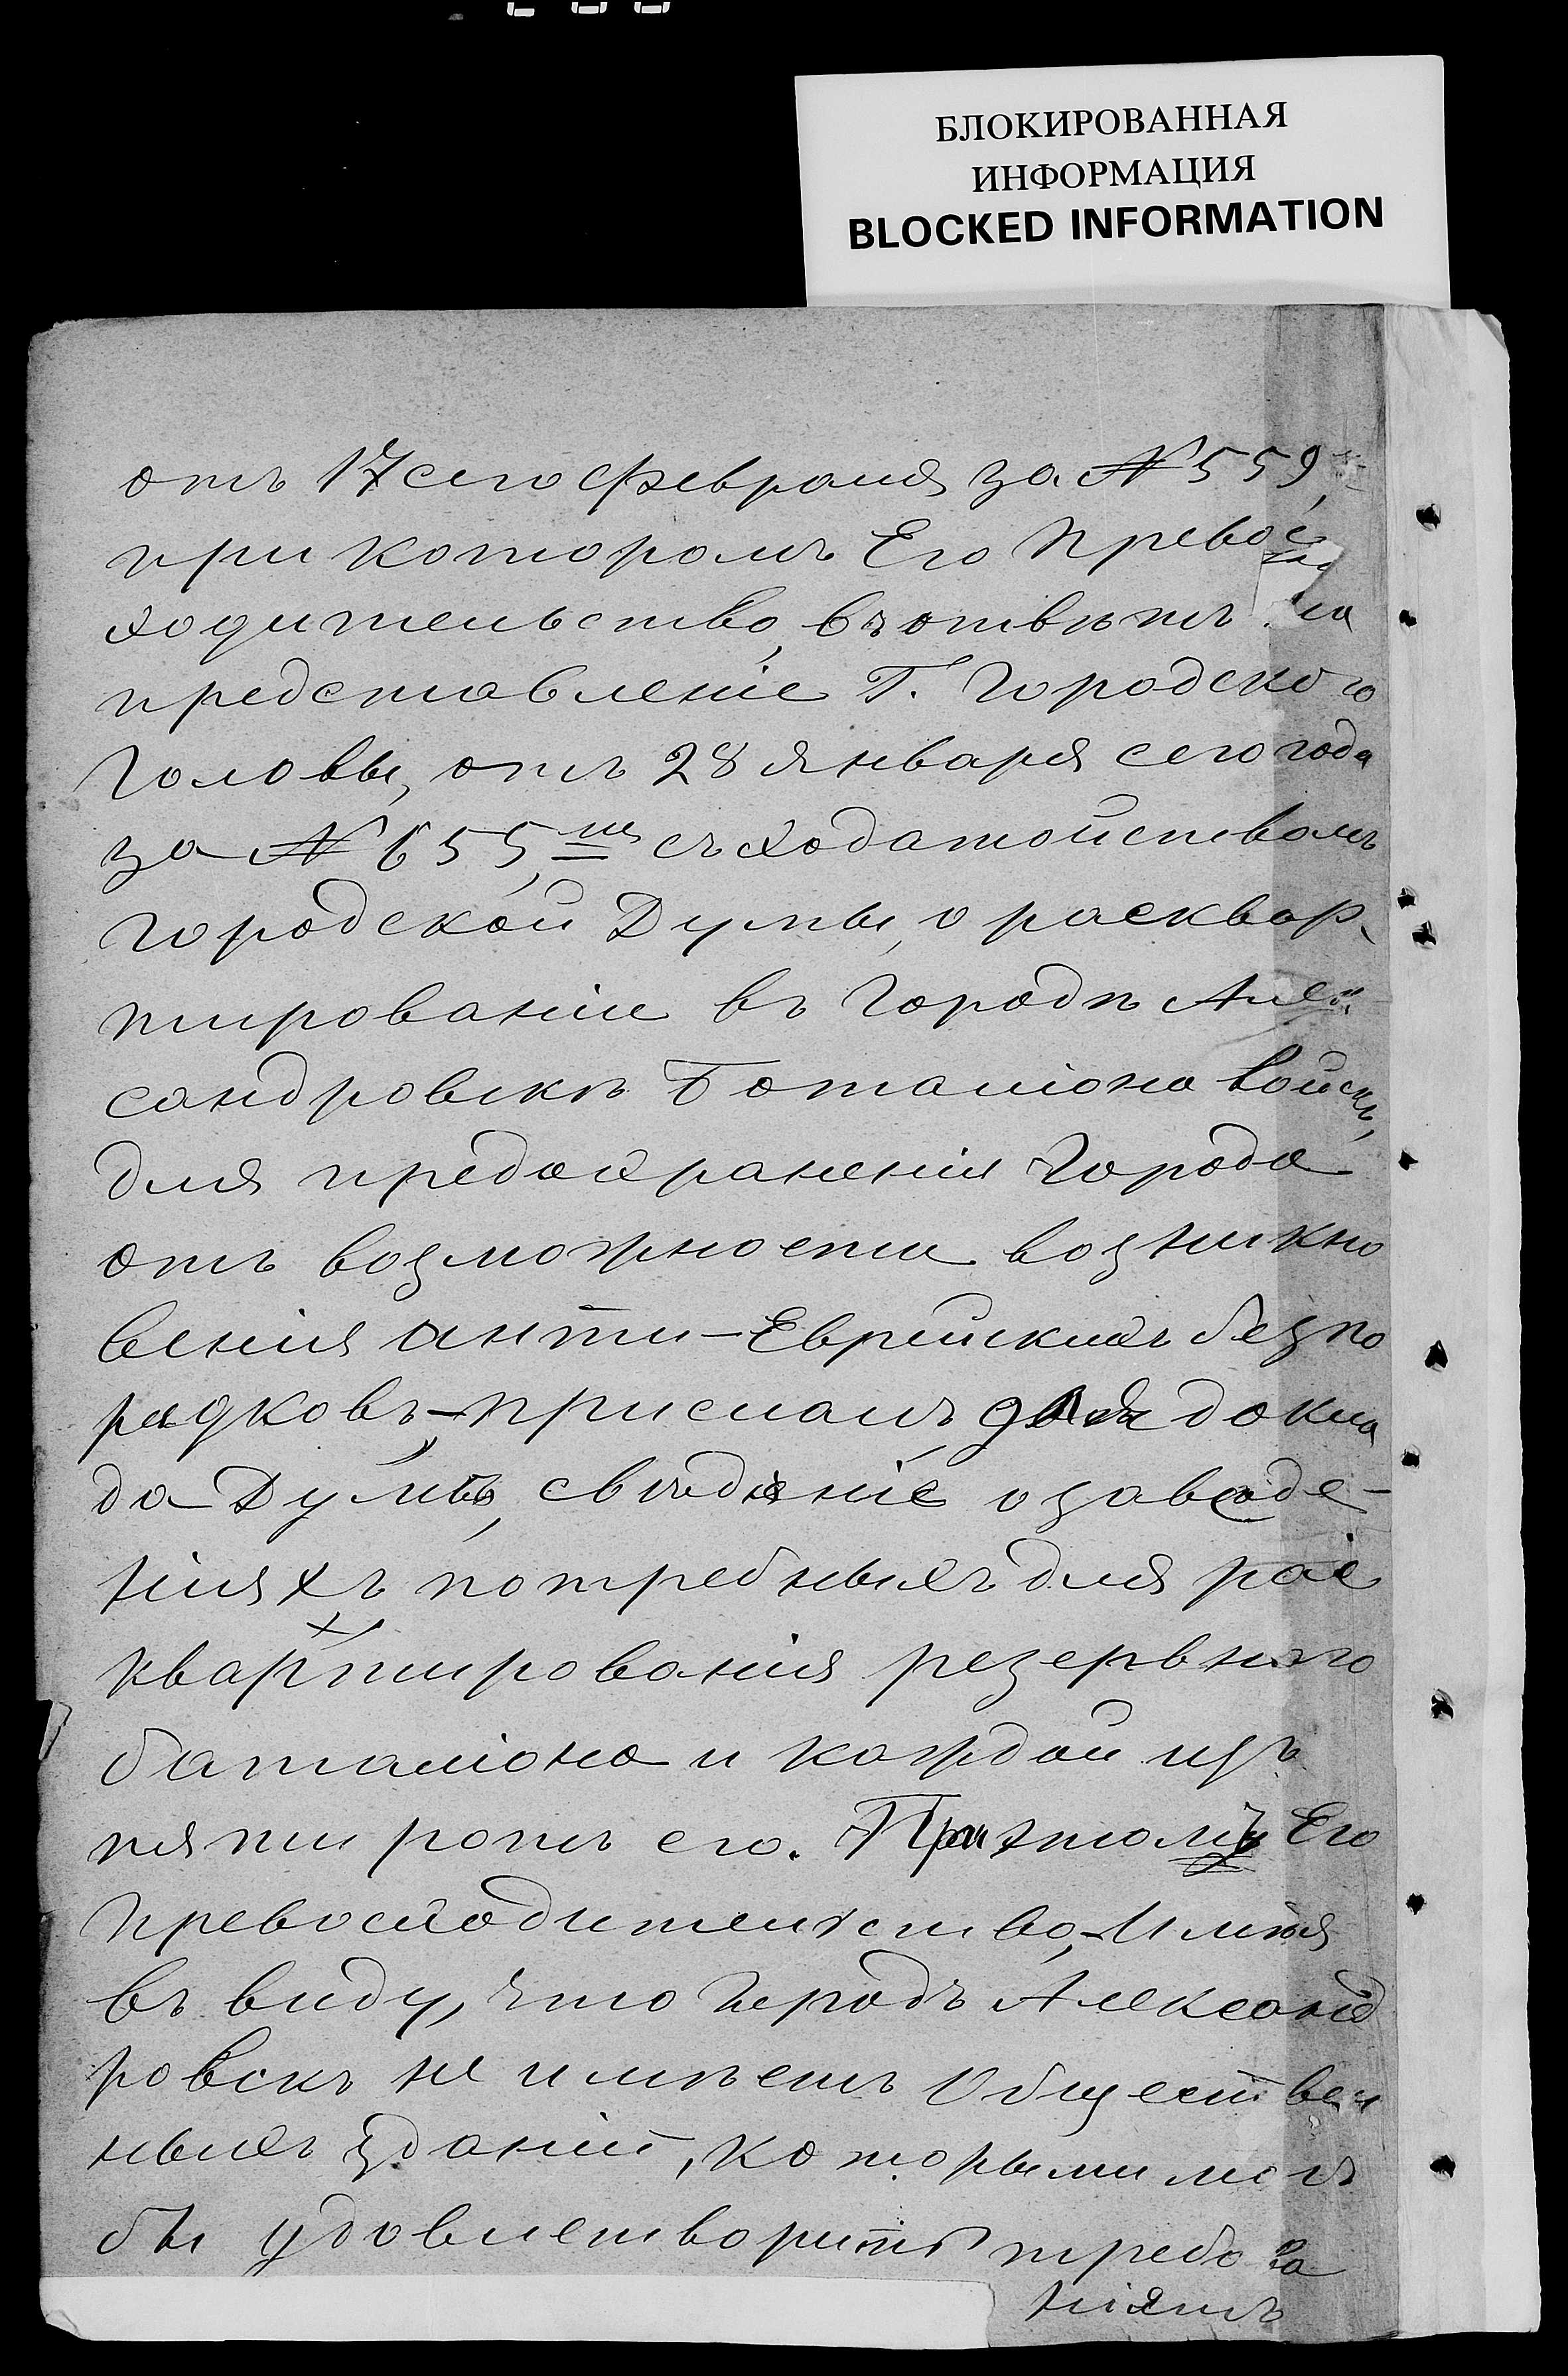 БЛОКИРОВАННАЯ
ИНФОРМАЦИЯ
BLOCKED INFORMATION
отъ 17 сего февраля за № 559,
при которомъ Его Превос
ходительство, въ отвѣтъ на
представленіе Г. Городского
Головы, отъ 28 января сего года
за № 655, съ ходатайствомъ
городской Думы, о расквар-
тированіи въ городѣ Алек
сандровскѣ баталіона войскъ,
для предохраненія города
отъ возможности возникно
венія анти-Еврейскихъ безпо
рядковъ, прислалъ для докла
да Думѣ, свѣдѣніе о заведе-
ніяхъ потребныхъ для рас
квартированія резервнаго
баталіона и каждой изъ
пяти ротъ его. При этомъ Его
Превосходительство, Имѣя
въ виду, что городъ Александ
ровскъ не имѣетъ Обществен
ныхъ зданій, которыми могъ
бы удовлетворить требова
ніямъ